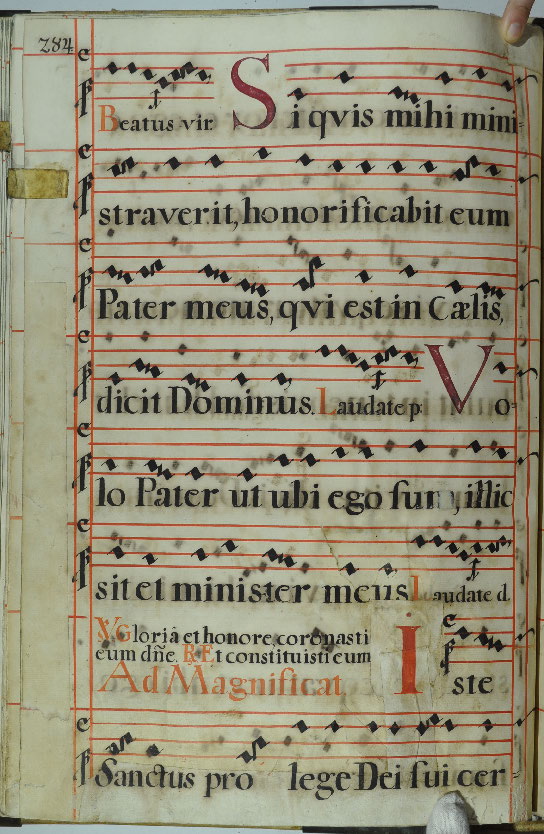 284
Beatus vir. Si qvis mihi mini
straverit, honorificabit eum
Pater meus, qvi est in Cælis,
dicit Dominus. Laudate p. Vo-
lo Pater ut ubi ego sum, illic
sit et minister meus. Laudate d.
V. Gloriâ et honore coronasti
eum dñe. R. Et constituisti eum
Ad Magnificat. Iste
Sanctus pro lege Dei sui cer-